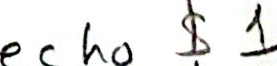 echo $ 1